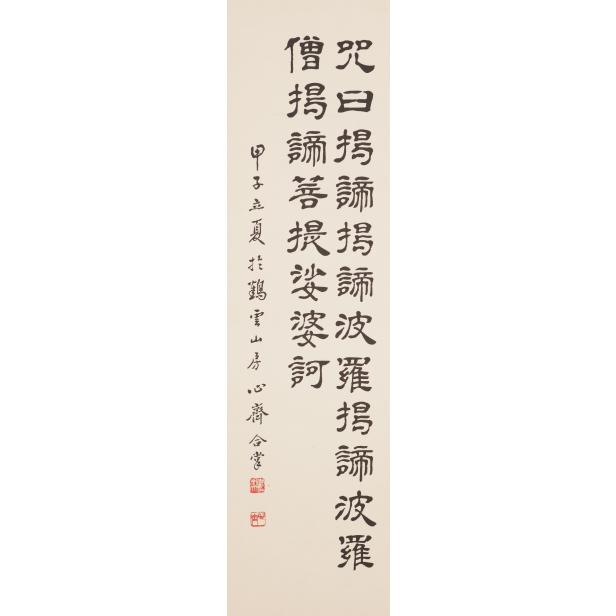 咒曰揭諦揭諦波羅揭諦波羅
僧揭諦菩提娑婆訶
甲子立夏於雲山房心齋合掌